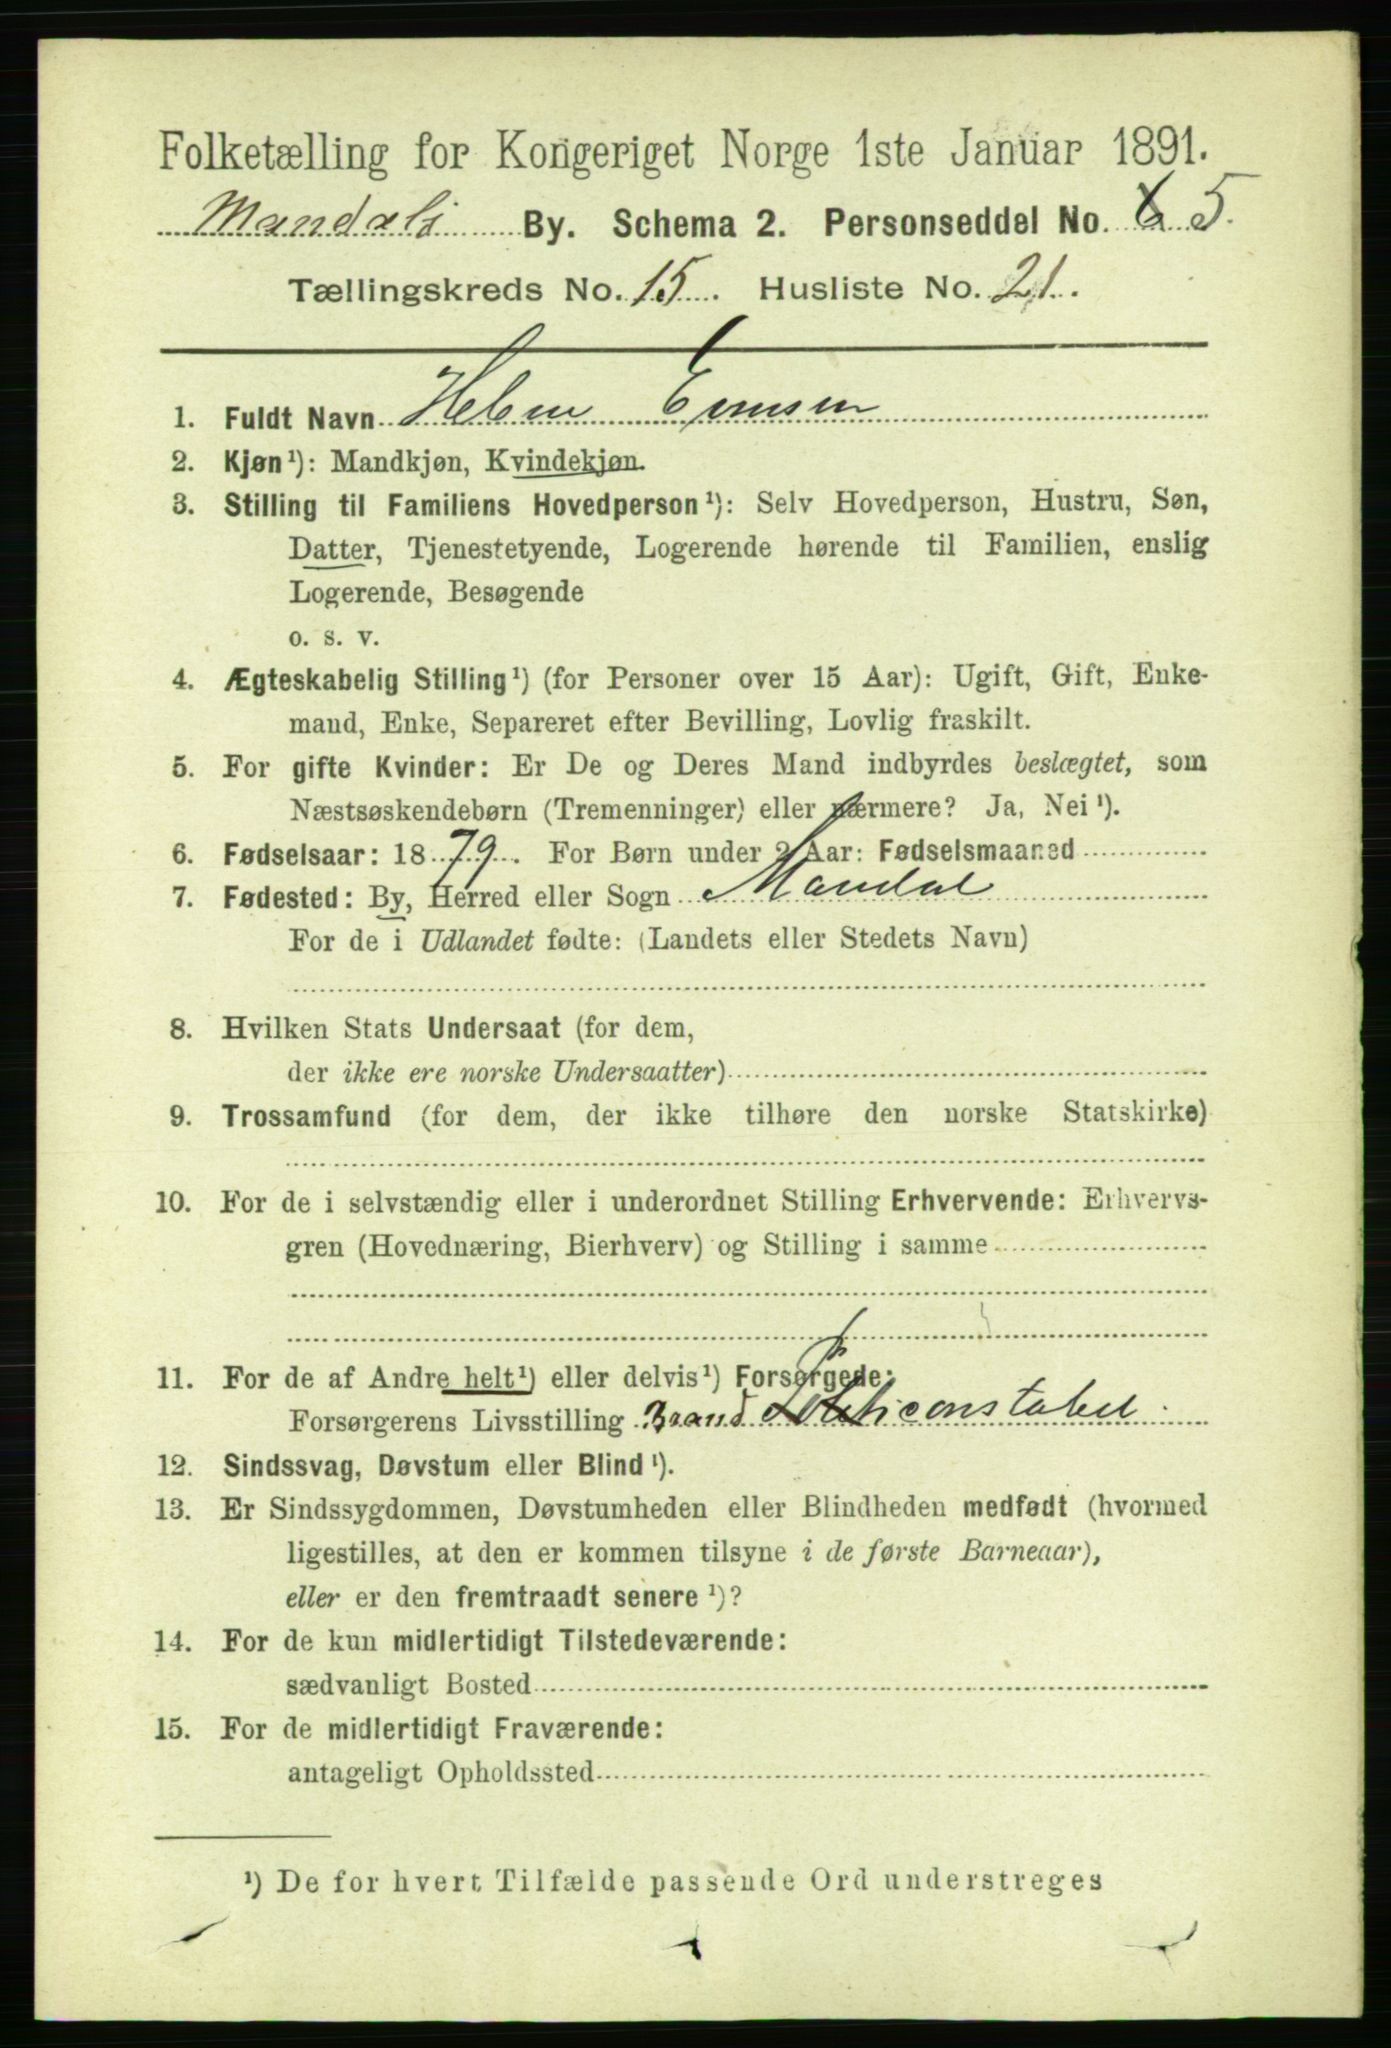 Folketælling for Kongeriget Norge 1ste Januar 1891.
Mandals By. Schema 2. Personseddel No. 6 5.
Tællingskreds No. 15. Husliste No. 21.
1. Fuldt Navn Helene
2. Kjøn¹): Mandkjøn, Kvindekjøn.
3. Stilling til Familiens Hovedperson¹): Selv Hovedperson, Hustru, Søn,
Datter, Tjenestetyende, Logerende hørende til Familien, enslig
Logerende, Besøgende
o. s. v.
4. Ægteskabelig Stilling¹) (for Personer over 15 Aar): Ugift, Gift, Enke-
mand, Enke, Separeret efter Bevilling, Lovlig fraskilt.
5. For gifte Kvinder: Er De og Deres Mand indbyrdes beslægtet, som
Næstsøskendebørn (Tremenninger) eller nærmere? Ja, Nei¹).
6. Fødselsaar: 1879. For Børn under 2 Aar: Fødselsmaaned
7. Fødested: By, Herred eller Sogn Mandal
For de i Udlandet fødte: (Landets eller Stedets Navn)
8. Hvilken Stats Undersaat (for dem,
der ikke ere norske Undersaatter)
9. Trossamfund (for dem, der ikke tilhøre den norske Statskirke)
10. For de i selvstændig eller i underordnet Stilling Erhvervende: Erhvervs-
gren (Hovednæring, Bierhverv) og Stilling i samme
11. For de af Andre helt¹) eller delvis¹) Forsørgede:
Forsørgerens Livsstilling Brand constabel.
12. Sindssvag, Døvstum eller Blind¹).
13. Er Sindssygdommen, Døvstumheden eller Blindheden medfødt (hvormed
ligestilles, at den er kommen tilsyne i de første Barneaar),
eller er den fremtraadt senere¹)?
14. For de kun midlertidigt Tilstedeværende:
sædvanligt Bosted
15. For de midlertidigt Fraværende:
antageligt Opholdssted
¹) De for hvert Tilfælde passende Ord understreges